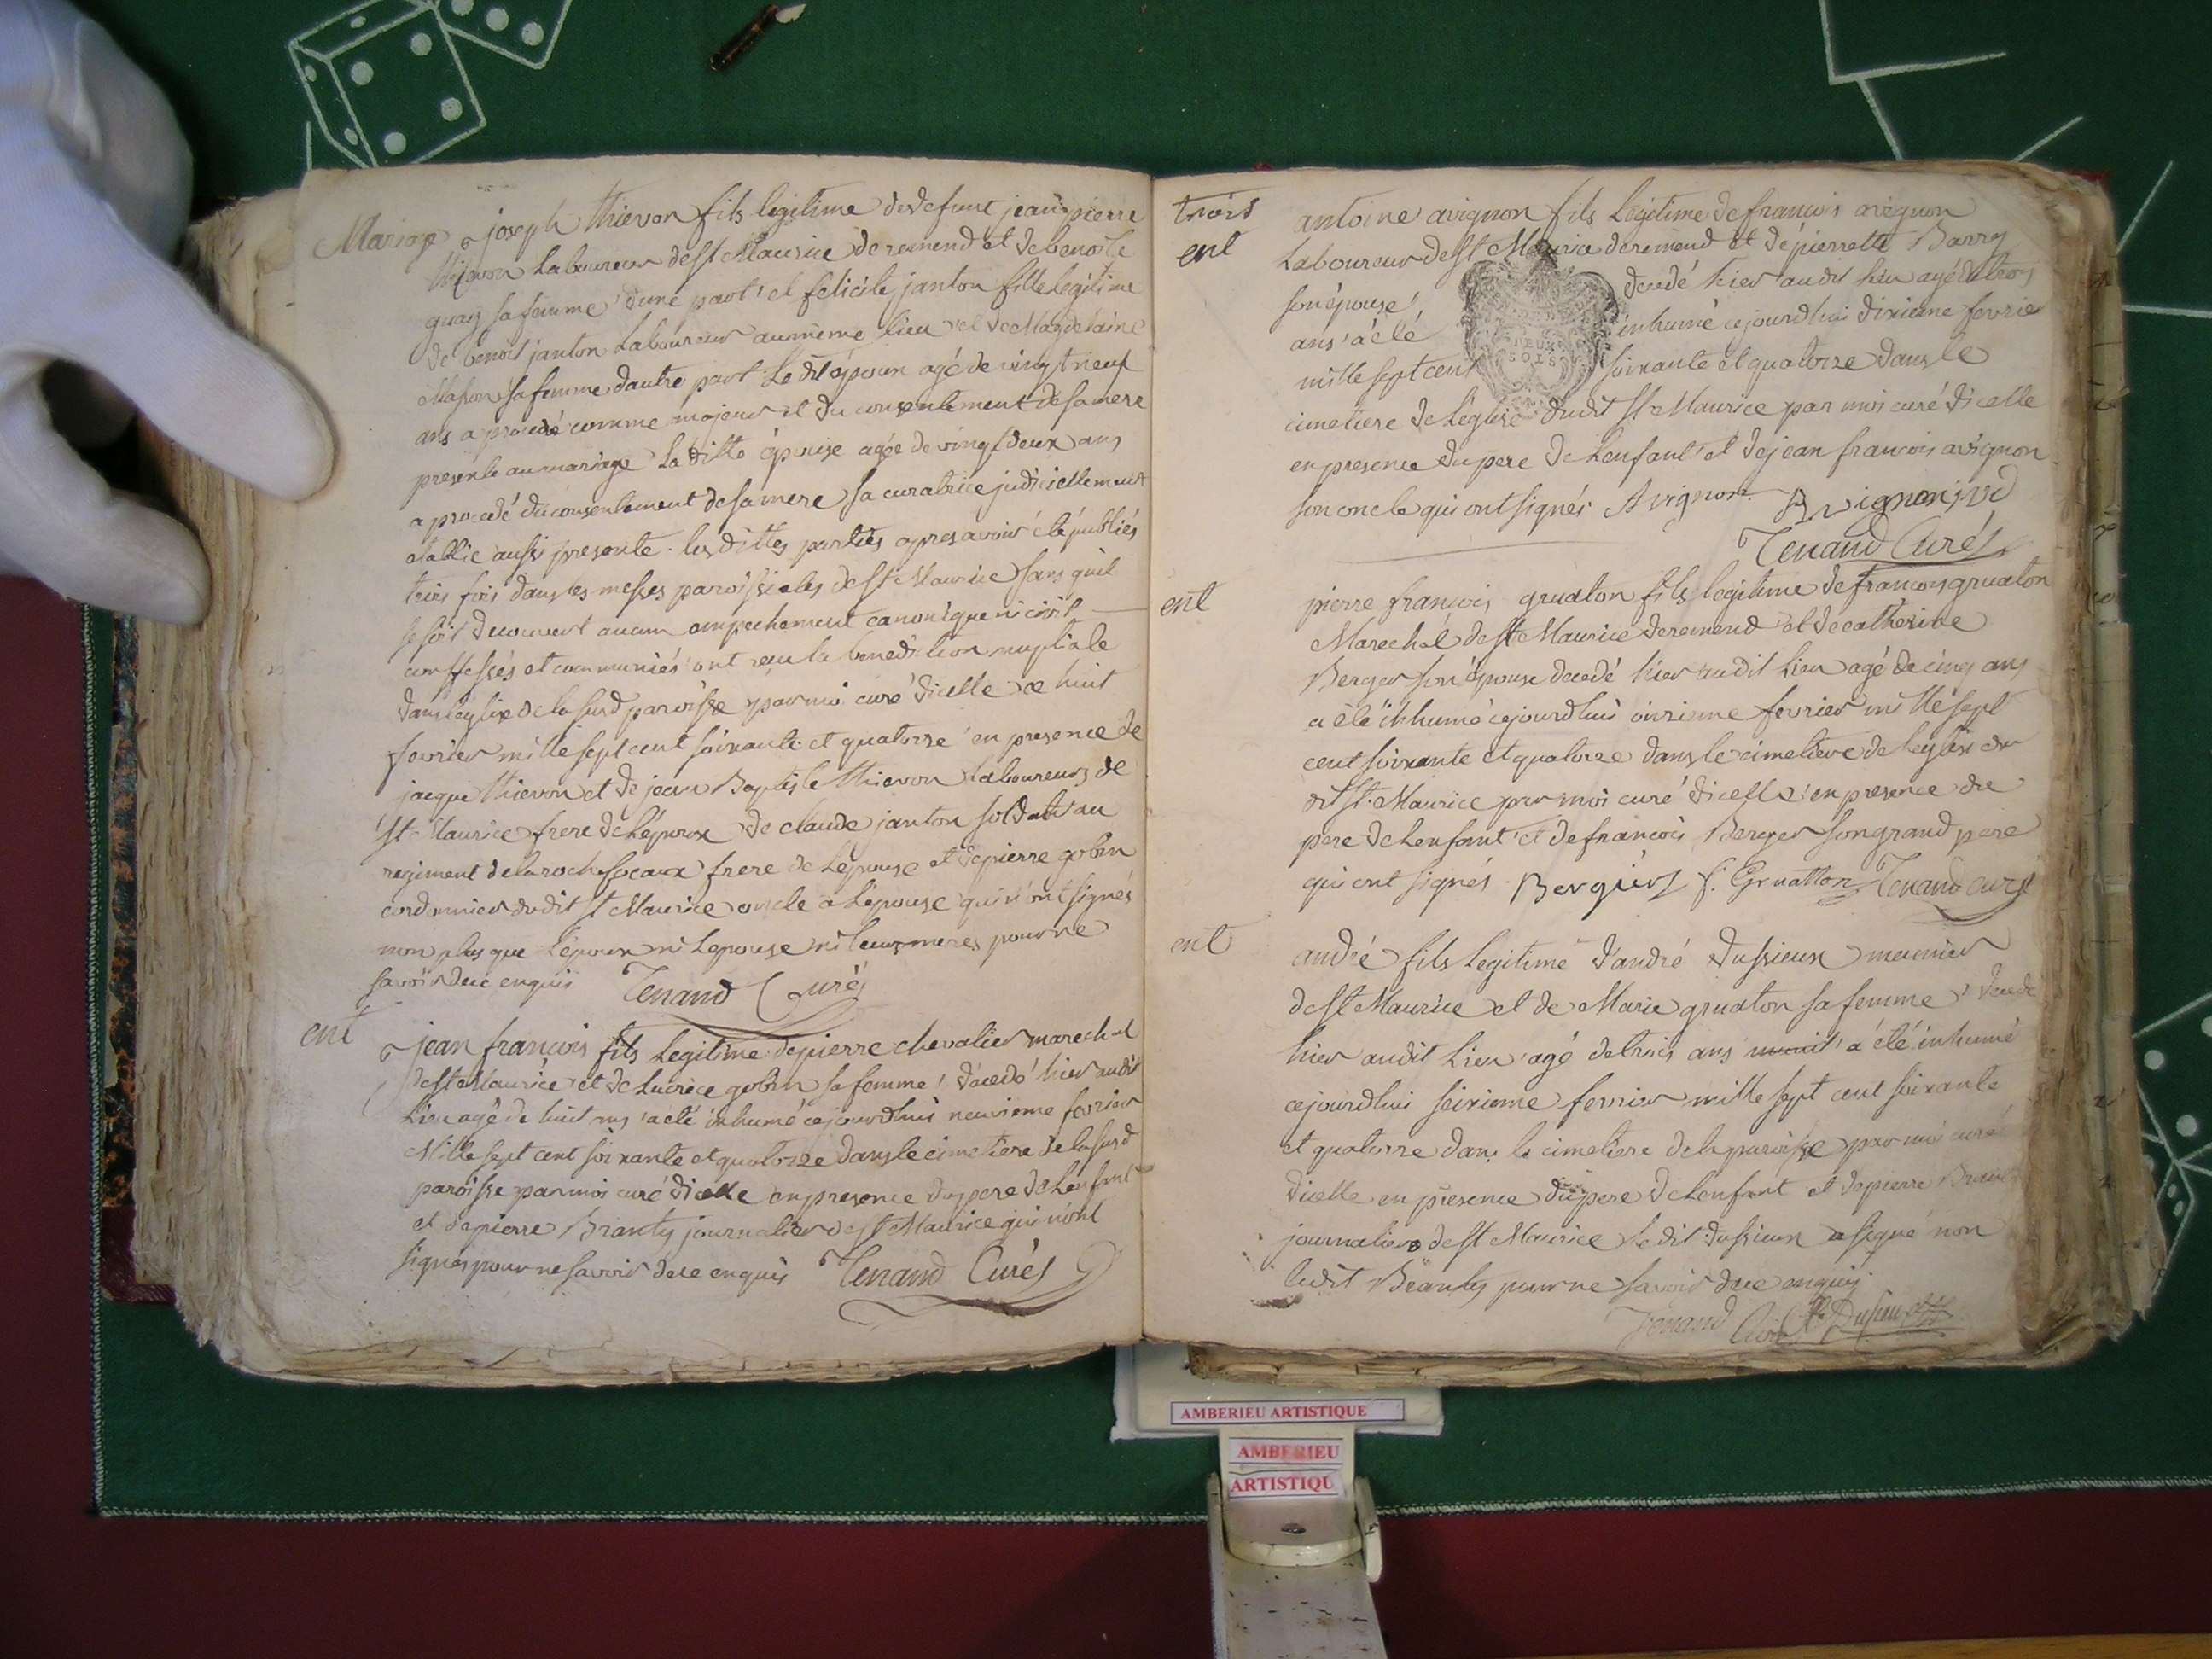 Mariage joseph thievon fils legitime de defunt jean pierre
thievon Laboureur de st Maurice de remend et de benoite
guay sa femme d'une part et felicité janton fille legitime
de benoit janton Laboureur au meme lieu et de Magdelaine
sa femme d'autre part. Le dit époux agé de vingt neuf
ans a procédé comme majeur et du consentement de sa mere
presente au mariage La ditte épouse agée de vingt deux ans
a procedé du consentement de sa mere sa curatrice judiciellement
etablie aussi presente. les dittes parties apres avoir été publiés
trois fois dans les messes paroissiales de st Maurice sans quil
se soit decouvert aucun empechement canonique ni civil
conffessés et communiés ont reçu la benediction nuptiale
dans l'eglise de la susd paroisse par moi curé d'icelle ce huit
fevrier mille sept cent soixante et quatorze en presence de
jacque thievon et de jean Baptiste thievon Laboureurs de
st Maurice frere de L'époux de claude janton soldat au
regiment de la rochefocaux frere de L'épouse et de pierre gobin
cordonnier du dit st Maurice oncle a L'épouse qui n'ont signés
non plus que L'époux ni L'epouse ni leurs meres pour ne
savoir de ce enquis Tenand Curé
ent
jean françois fils Legitime de pierre chevalier marechal
de st Maurice et de Lucrece gobin sa femme decedé hier audit
Lieu agé de huit ans a été inhumé cejourdhui neuvieme fevrier
Mille sept cent soixante et quatorze dans le cimetiere de la susd
paroisse par moi curé d'icelle en presence du pere de L'enfant
et de pierre Branly journalier de st Maurice qui n'ont
signés pour ne savoir de ce enquis Tenand Curé
trois
ent
antoine avignon fils Legitime de francois avignon
Laboureur de st Maurice de remend et de pierrette Barry
son épouse decedé hier audit lieu agé de trois
ans a été inhumé cejourdhui dixieme fevrier
mille sept cent soixante et quatorze dans le
DEUX
SOLS
cimetiere de L'église dudit st Maurice par moi curé d'icelle
en presence du pere de L'enfant et de jean francois avignon
son oncle qui ont signés Avignon Avignon
Tenand Curé
ent
pierre françois gruaton fils legitime de francois gruaton
Marechal de st Maurice de remend et de catherine
Berger son épouse decedé hier audit Lieu agé de cinq ans
a été inhumé cejourdhui onzieme fevrier mille sept
cent soixante et quatorze dans le cimetiere de L'eglise du
dit st. Maurice par moi curé d'icelle en presence du
pere de L'enfant et de francois Berger son grand pere
qui ont signés Bergier f. Gruatton Tenand curé
ent
andré fils Legitime d'andré dussieux meunier
de st Maurice et de Marie gruaton sa femme decedé
hier audit Lieu agé de trois ans a été inhumé
cejourdhui seizieme fevrier mille sept cent soixante
et quatorze dans le cimetiere de la paroisse par moi curé
d'icelle en presence du pere de L'enfant et de pierre
journalier de st Maurice Le dit dussieux a signé non
ledit Branly pour ne savoir de ce enquis
Tenand Curé Dusieux
AMBERIEU ARTISTIQUE
AMBERIEU
ARTISTIQU